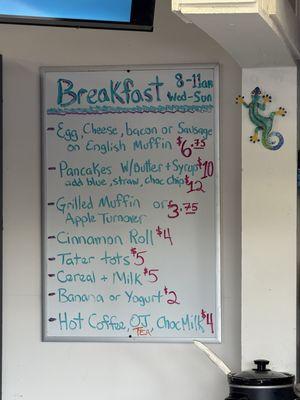 Breakfast 8-11am
Wed-Sun
- Egg, Cheese, bacon or Sausage
on English Muffin $6.75
- Pancakes w/Butter + Syrup $10
add blue, straw, choc chip $12
- Grilled Muffin or $3.75
Apple Turnover
- Cinnamon Roll $4
- Tater tots $5
- Cereal + Milk $5
- Banana or Yogurt $2
- Hot Coffee, OJ, Choc Milk $4
TEA